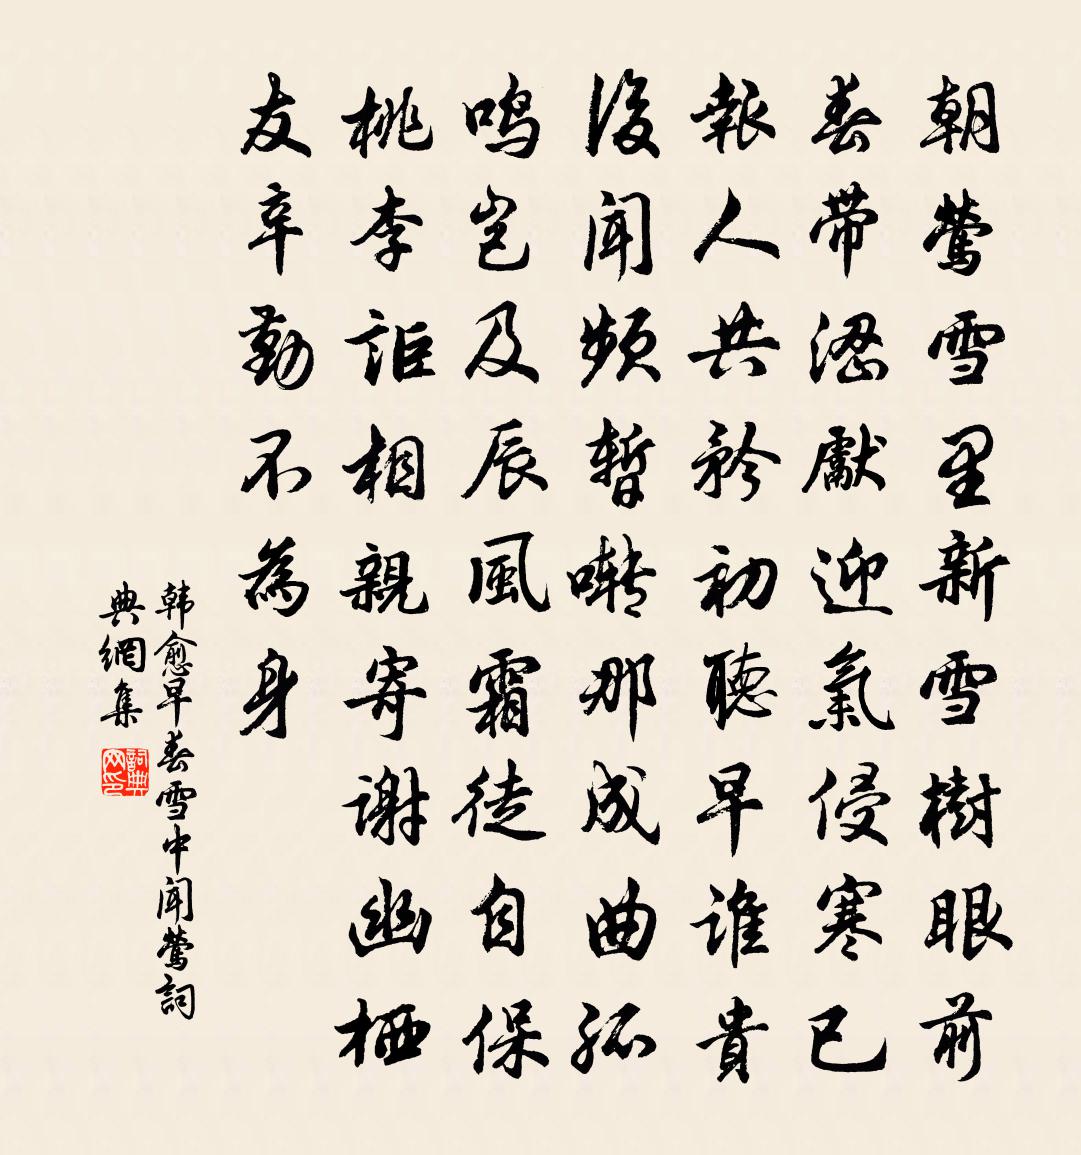 朝鶯雪里新雪樹眼前
春帶澀獻迎氣侵寒已
報人共矜初聽早誰貴
後聞頻暫囀那成曲孤
鳴豈及辰風霜徒自保
桃李詎相親寄謝幽栖
友辛勤不為身
韩愈早春雪中聞鶯詞
典網集
詞典网印